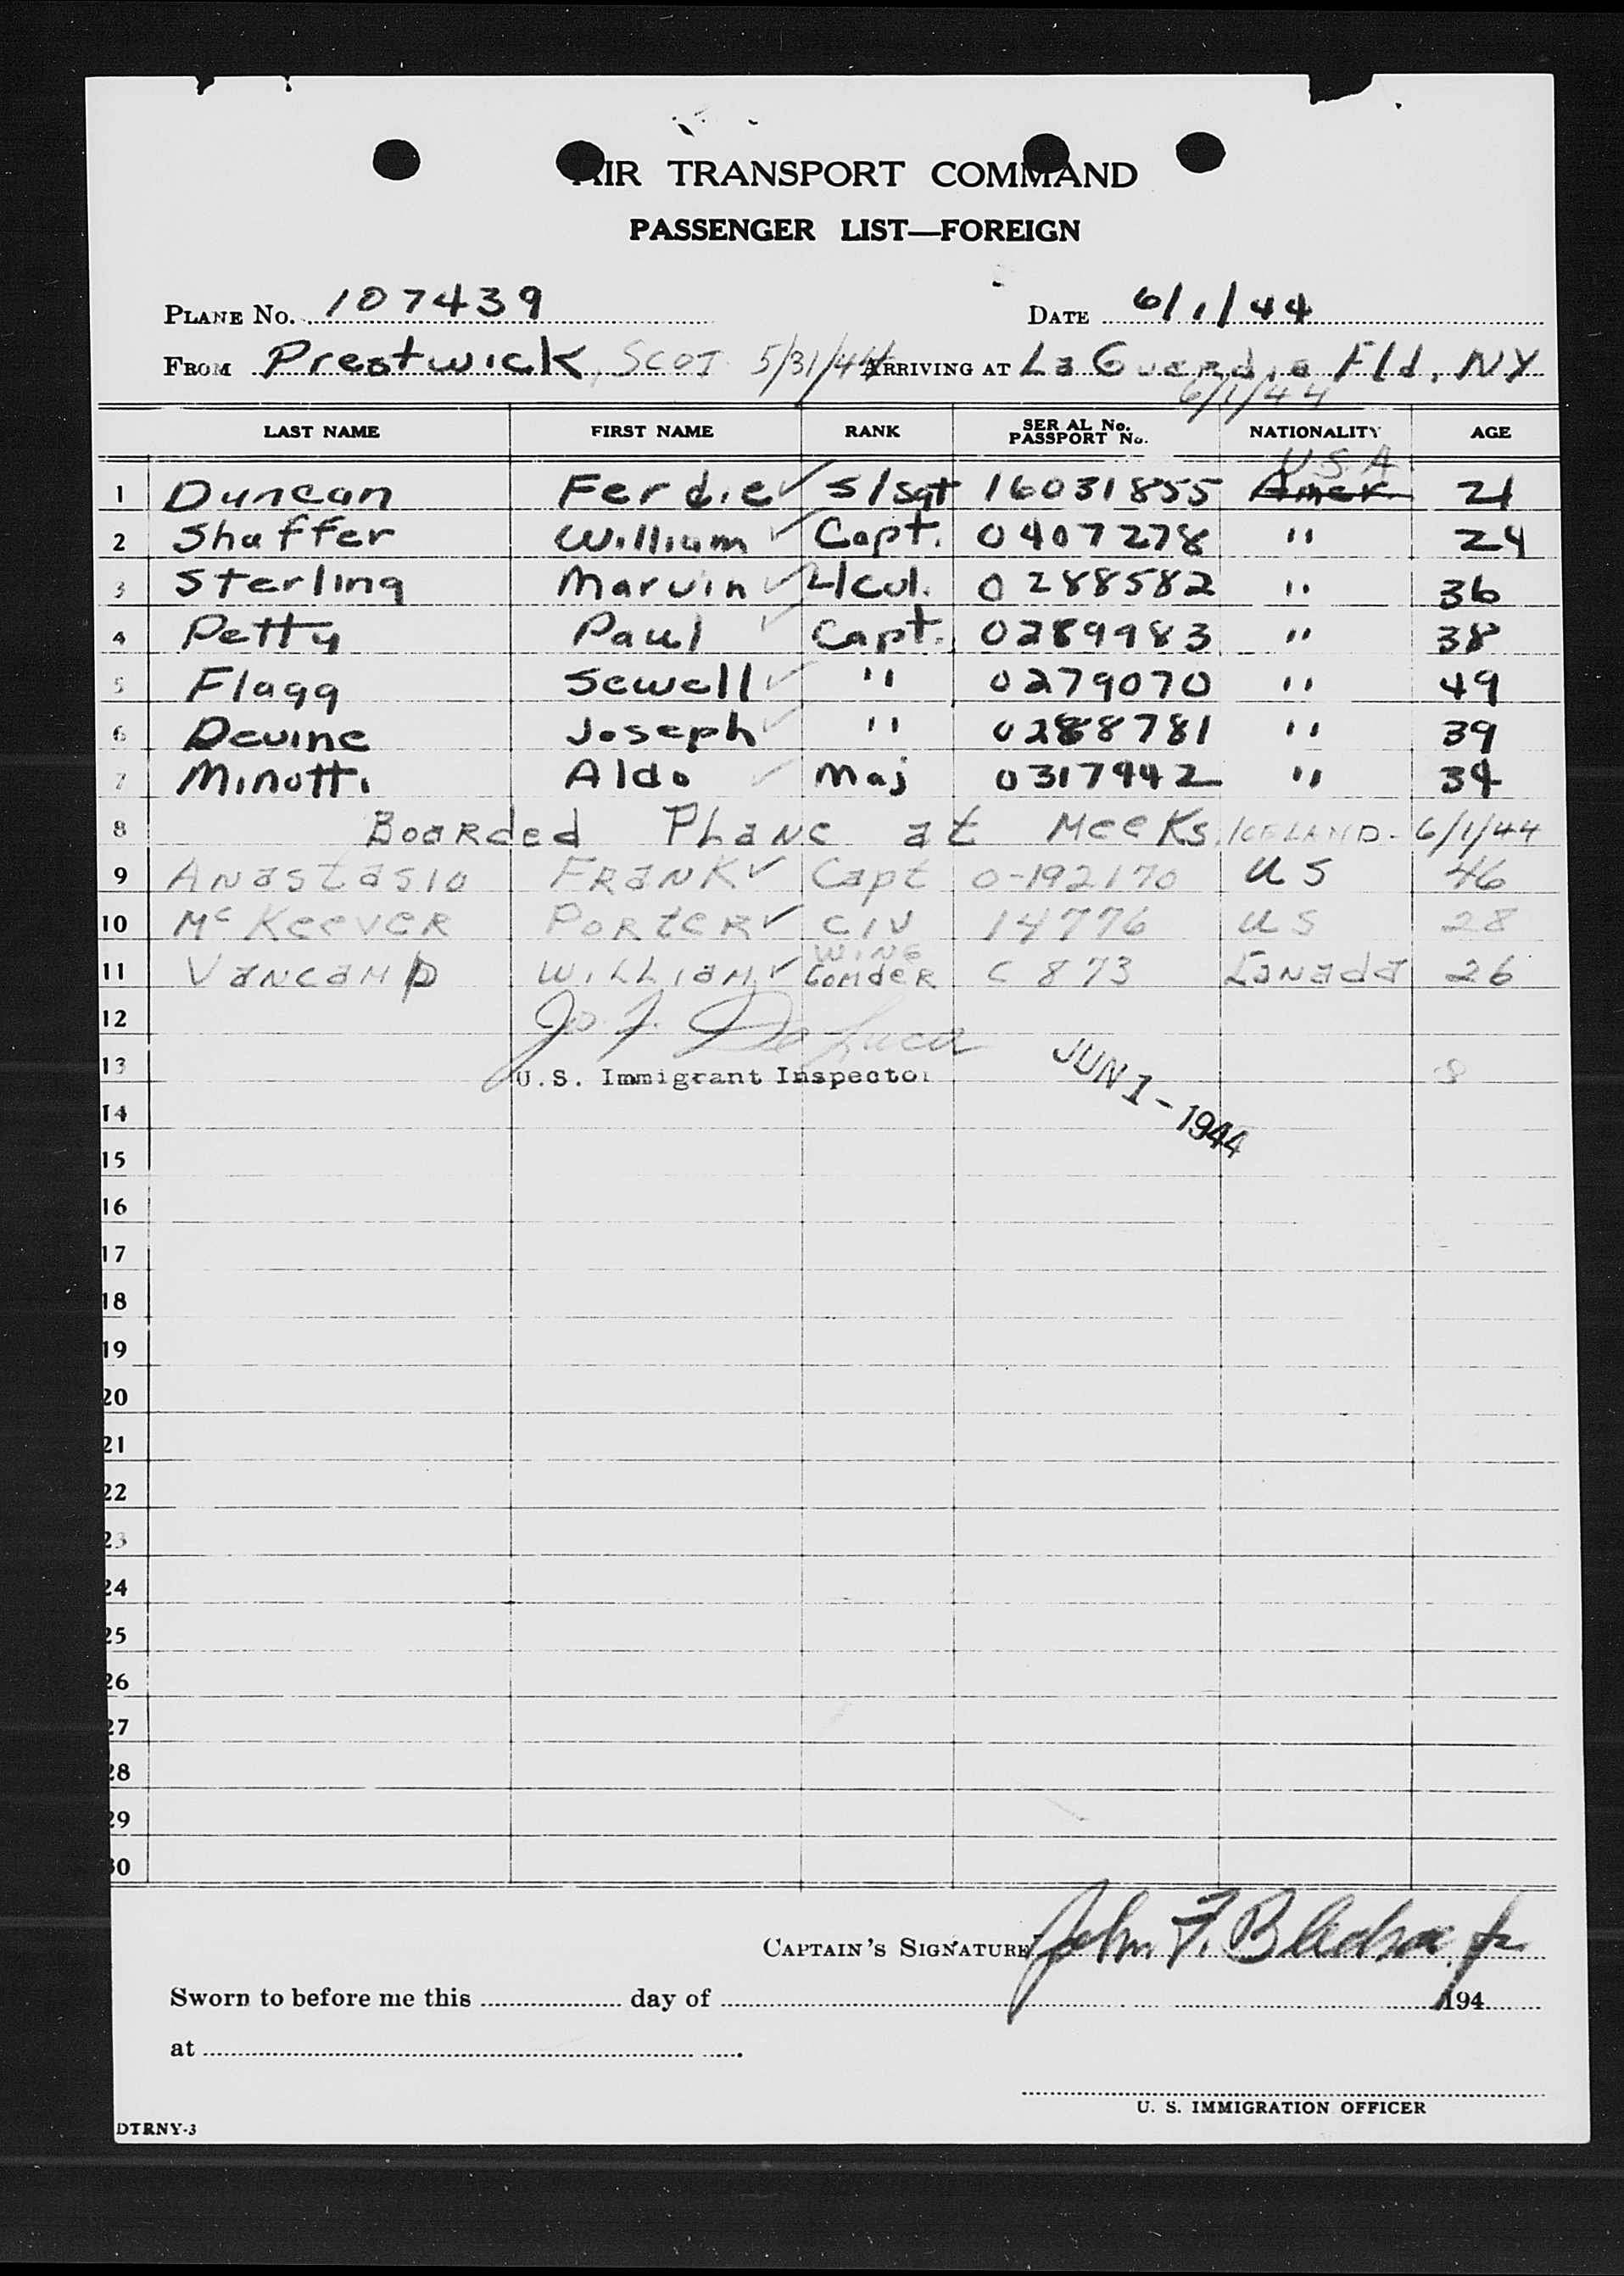 AIR TRANSPORT COMMAND
PASSENGER LIST—FOREIGN
PLANE NO. 107439 DATE 6/1/44
FROM Prestwick, SCOT 5/31/44 ARRIVING AT La Guardia Fld, NY
6/1/44
LAST NAME FIRST NAME RANK SERIAL No. PASSPORT No. NATIONALITY AGE
USA
1 Duncan Ferdie ✓ S/Sgt 16031855 Amer 21
2 Shaffer William ✓ Capt. 0407278 " 24
3 Sterling Marvin ✓ L/Col. 0288582 " 36
4 Petty Paul ✓ Capt. 0289983 " 38
5 Flagg Sewell ✓ " 0279070 " 49
6 Devine Joseph ✓ " 0288781 " 39
7 Minotti Aldo ✓ Maj 0317942 " 34
8 Boarded Plane at Meeks, ICELAND - 6/1/44
9 Anastasio FRANK ✓ Capt 0-192170 US 46
10 McKeever Porter ✓ CIV 14776 US 28
11 Vancamp William ✓ WING Comder C 873 Canada 26
12
13 U.S. Immigrant Inspector JUN 1 - 1944 8
14
15
16
17
18
19
20
21
22
23
24
25
26
27
28
29
30
CAPTAIN'S SIGNATURE John F. Jr
Sworn to before me this day of 194
at
U. S. IMMIGRATION OFFICER
DTRNY-3